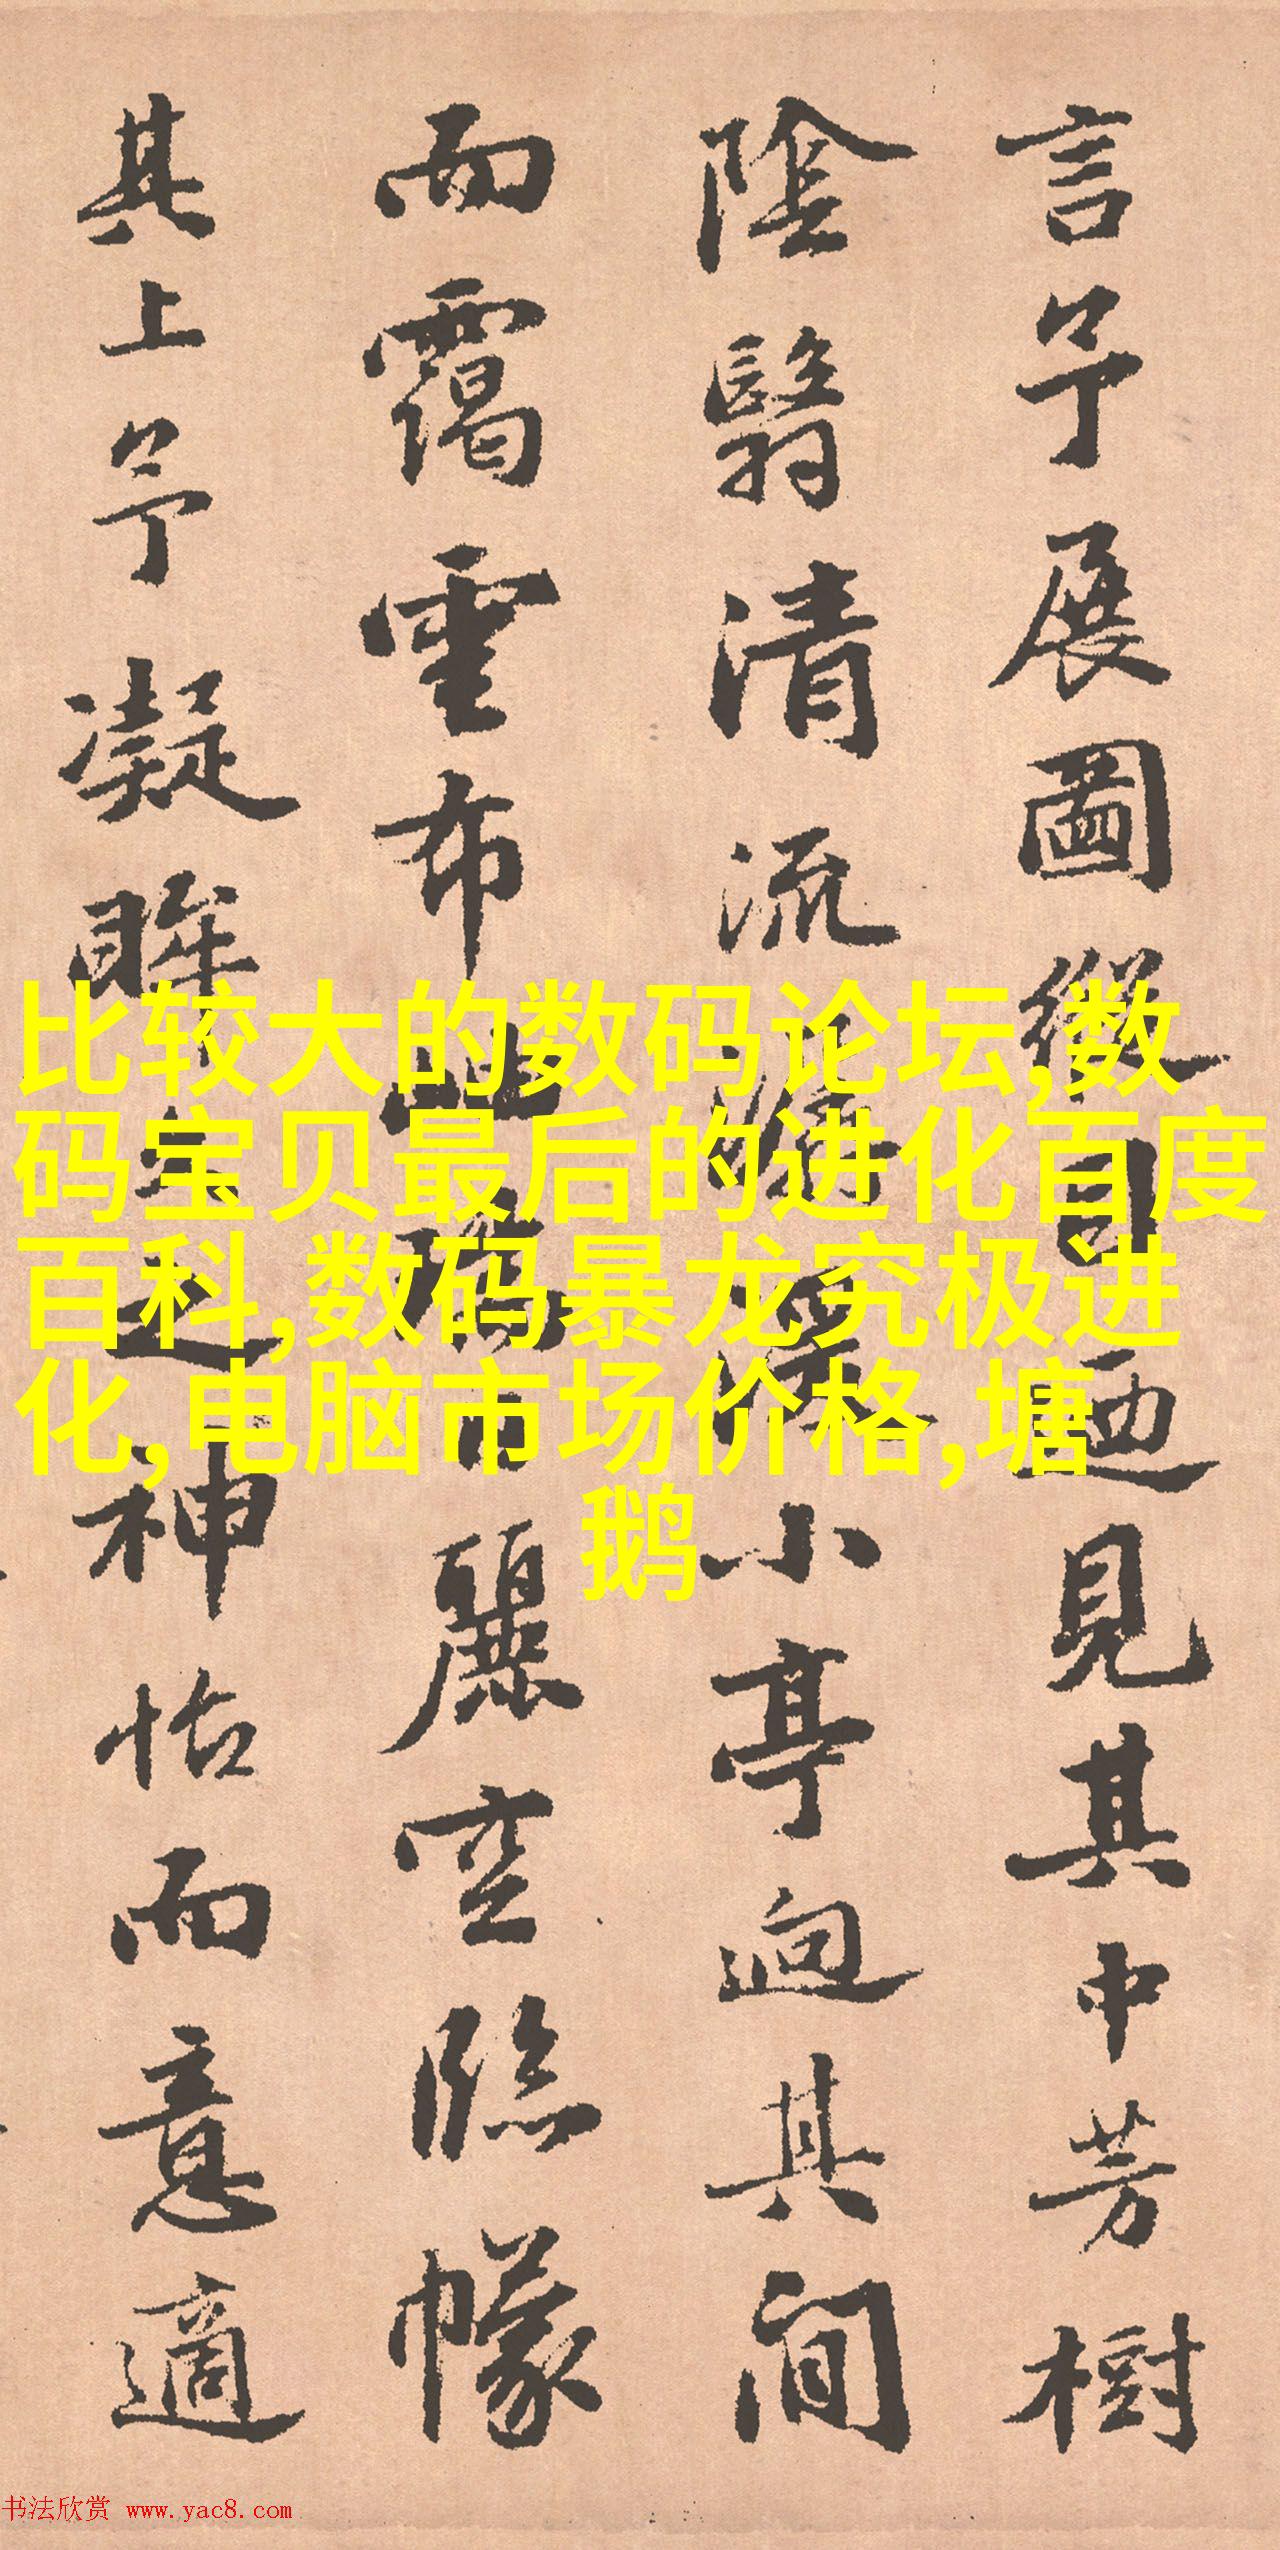 言予展圖縱目迺見其中芳樹
陰翳清流小亭迥其間
而靄雲布麗空臨幪
其上予凝眸之神怡而意適
比较大的数码论坛,数
码宝贝最后的进化百度
百科,数码暴龙究极进
化,电脑市场价格,塘
鹅
书法欣赏 www.yac8.com